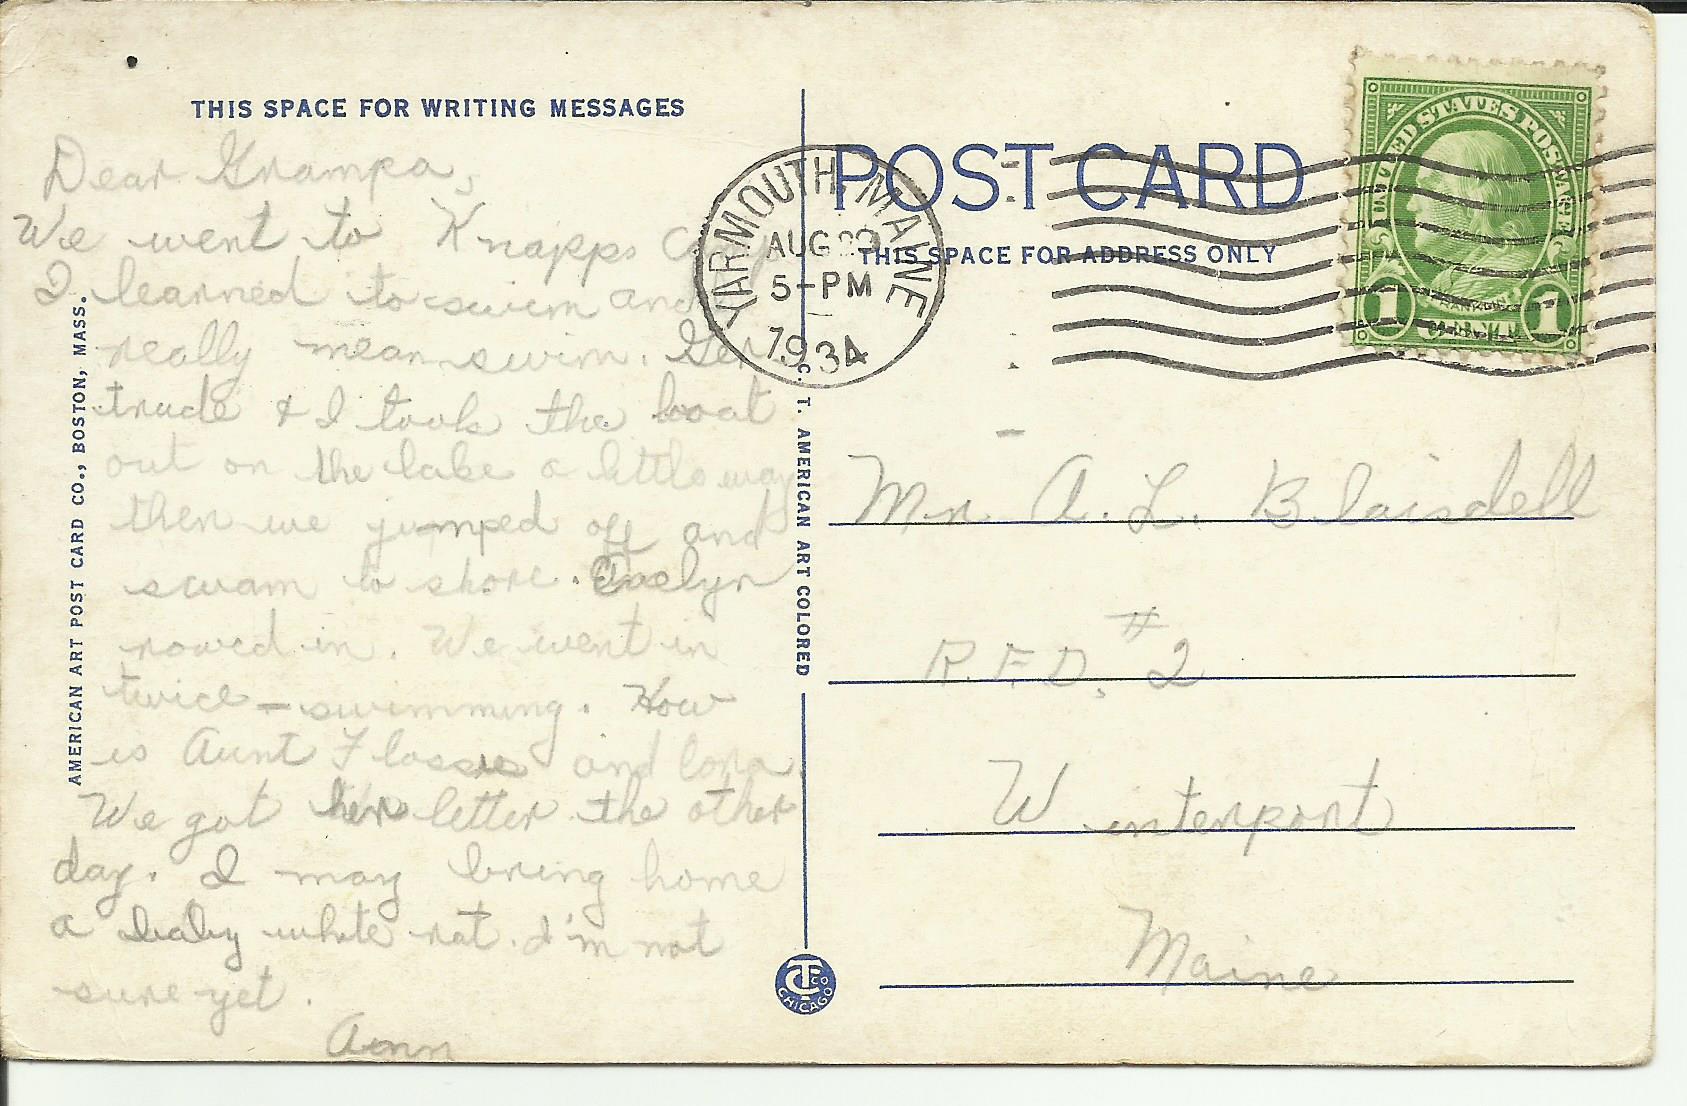 THIS SPACE FOR WRITING MESSAGES
Dear Grampa,
We went to Knapps Camp
I learned to swim and
really mean swim. Ger
trude & I took the boat
out on the lake a little way
then we jumped off and
swam to shore. Evelyn
rowed in. We went in
twice – swimming. How
is Aunt Flossie and Cora.
We got her letter the other
day. I may bring home
a baby white rat. I'm not
sure yet.
Ann
AMERICAN ART POST CARD CO., BOSTON, MASS.
C. T. AMERICAN ART COLORED
CTCO
CHICAGO
POST CARD
THIS SPACE FOR ADDRESS ONLY
YARMOUTH, MAINE
AUG
5-PM
1934
UNITED STATES POSTAGE
1 1
Mr. A. L. Blaisdell
R.F.D. #2
Winterport
Maine